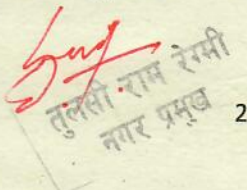 तुलसी राम रेग्मी
नगर प्रमुख
2